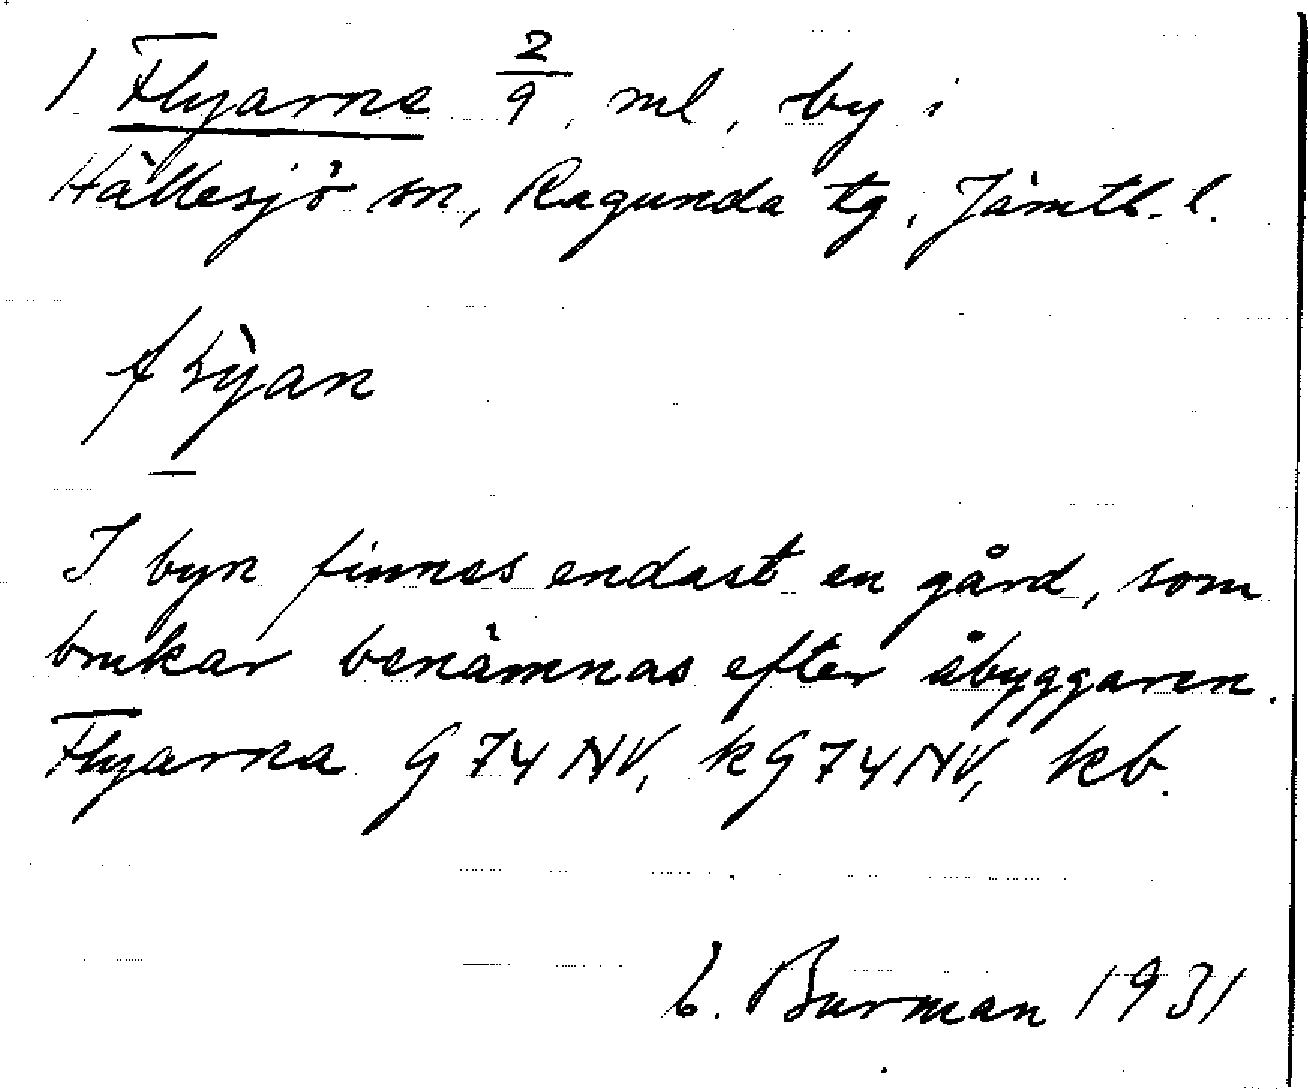 1 Flyarne 2/9, ml, by i
Hällesjö sn, Ragunda tg, Jämtl. l.
I byn finnes endast en gård, som
brukar benämnas efter åbyggaren.
Flyarna G 74 NV, kG 74 NV, kb.
Burman 1931